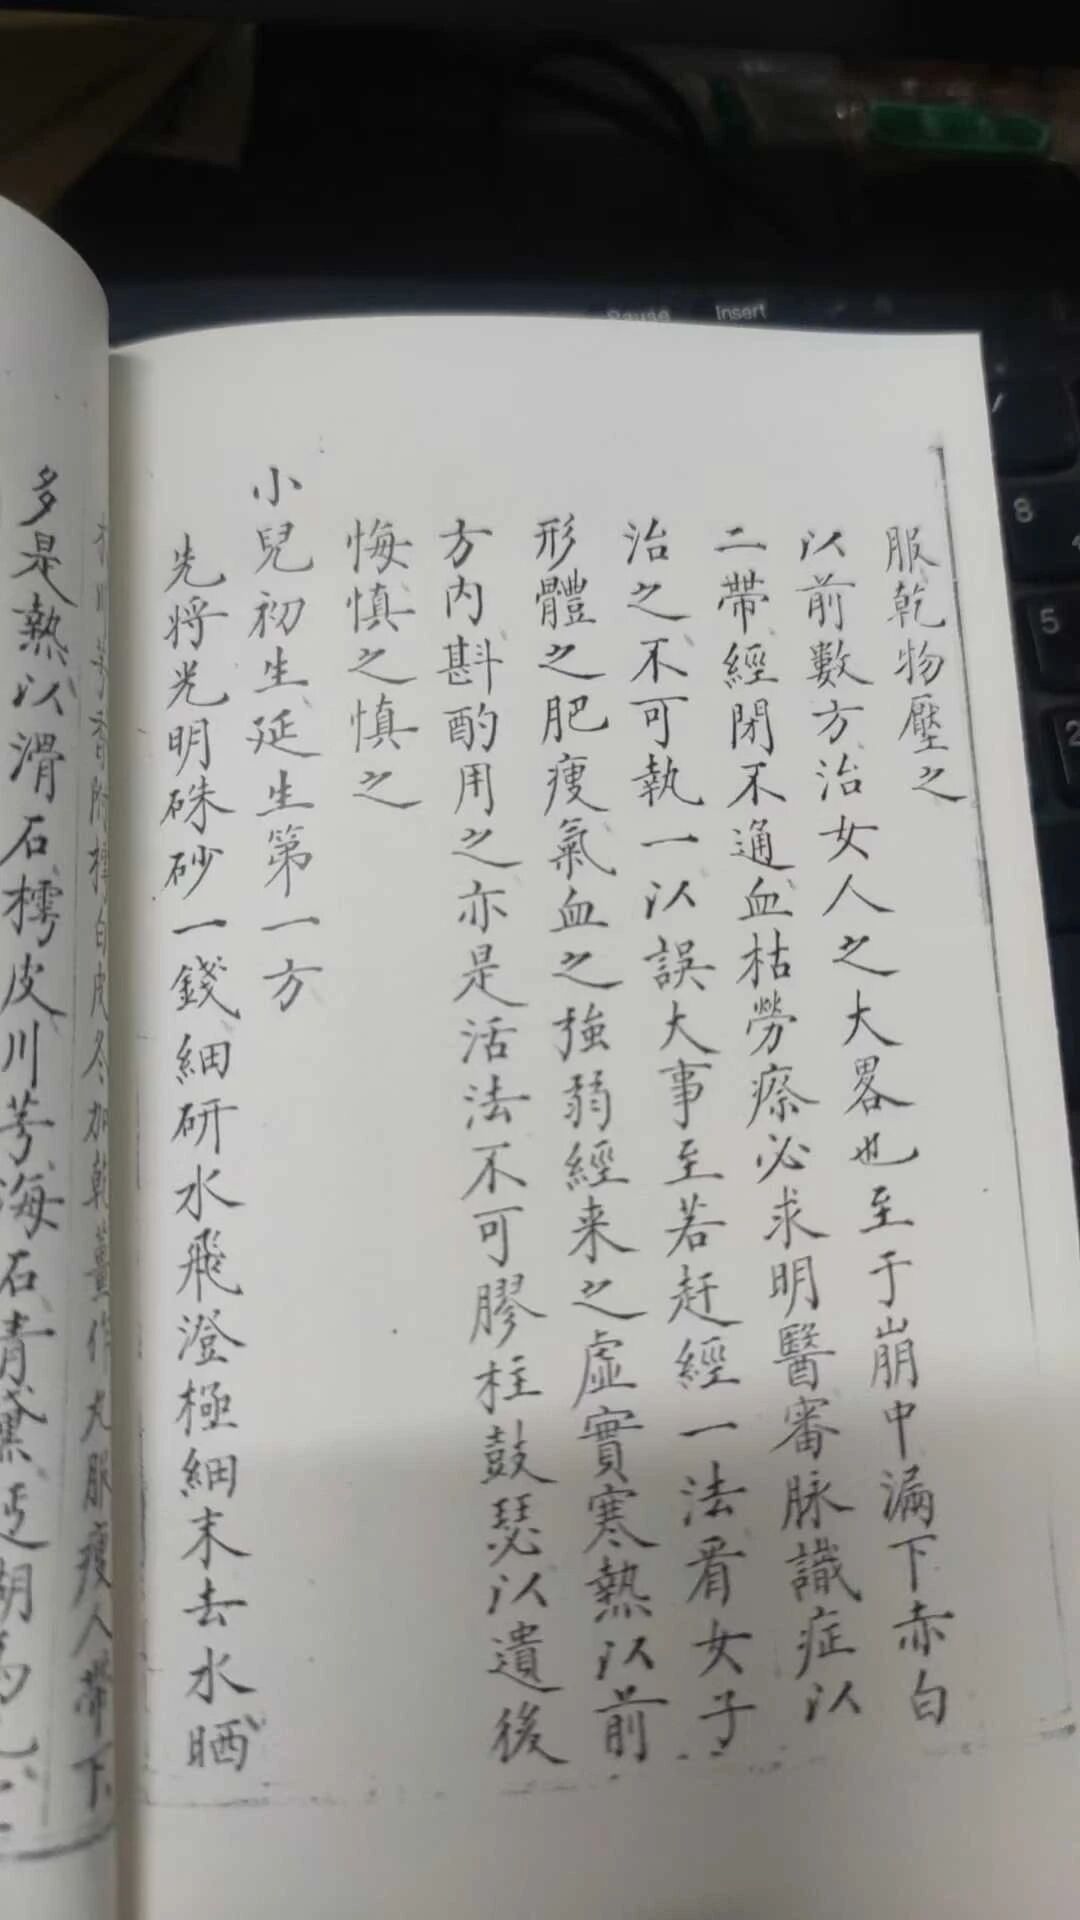 服乾物壓之
以前數方治女人之大畧也至于崩中漏下赤白
二帶經閉不通血枯勞瘵必求明醫審脉識症以
治之不可執一以誤大事至若赶經一法看女子
形體之肥瘦氣血之強弱經来之虛實寒熱以前
方内斟酌用之亦是活法不可膠柱鼓瑟以遺後
悔慎之慎之
小兒初生延生第一方
先將光明硃砂一錢細研水飛澄極細末去水晒
白皮冬加乾薑作丸服瘦人帶下
多是熱以滑石樗皮川芎海石青黛
Insert
8
5
2